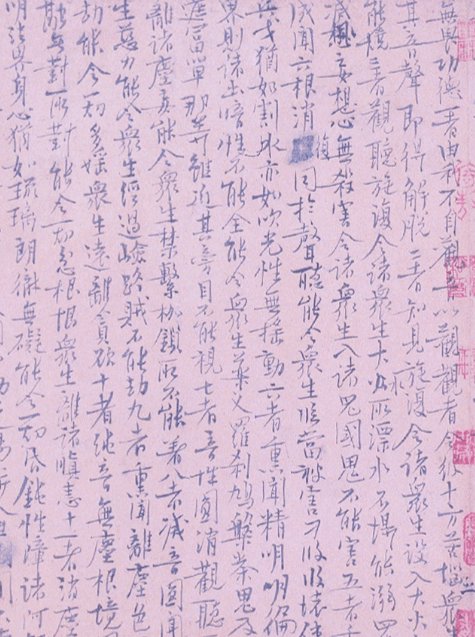 無畏功德一者由我不自觀音以觀觀者令彼十方苦惱眾
其音聲即得解脫二者知見旋復令諸眾生設入大火
能燒三者觀聽旋復令諸眾生大水所漂水不能溺四
滅妄想心無殺害令諸眾生入諸鬼國鬼不能害五者
成聞六根消復同於聲聽能令眾生臨當被害刀段段壞使
兵戈猶如割水亦如吹光性無搖動六者熏聞精明明徧
界則諸暗性不能全能令眾生藥叉羅剎鳩槃茶鬼及
遮富單那等雖近其旁目不能視七者音性圓消觀聽
離諸塵妄能令眾生禁繫枷鎖所不能著八者滅音圓聞
生慈力能令眾生經過嶮路賊不能劫九者熏聞離塵色
劫能令一切多婬眾生遠離貪欲十者純音無塵根境
融無對所對能令一切忿恨眾生離諸瞋恚十一者消塵
明法界身心猶如琉璃朗徹無礙能令一切昏鈍性障諸阿